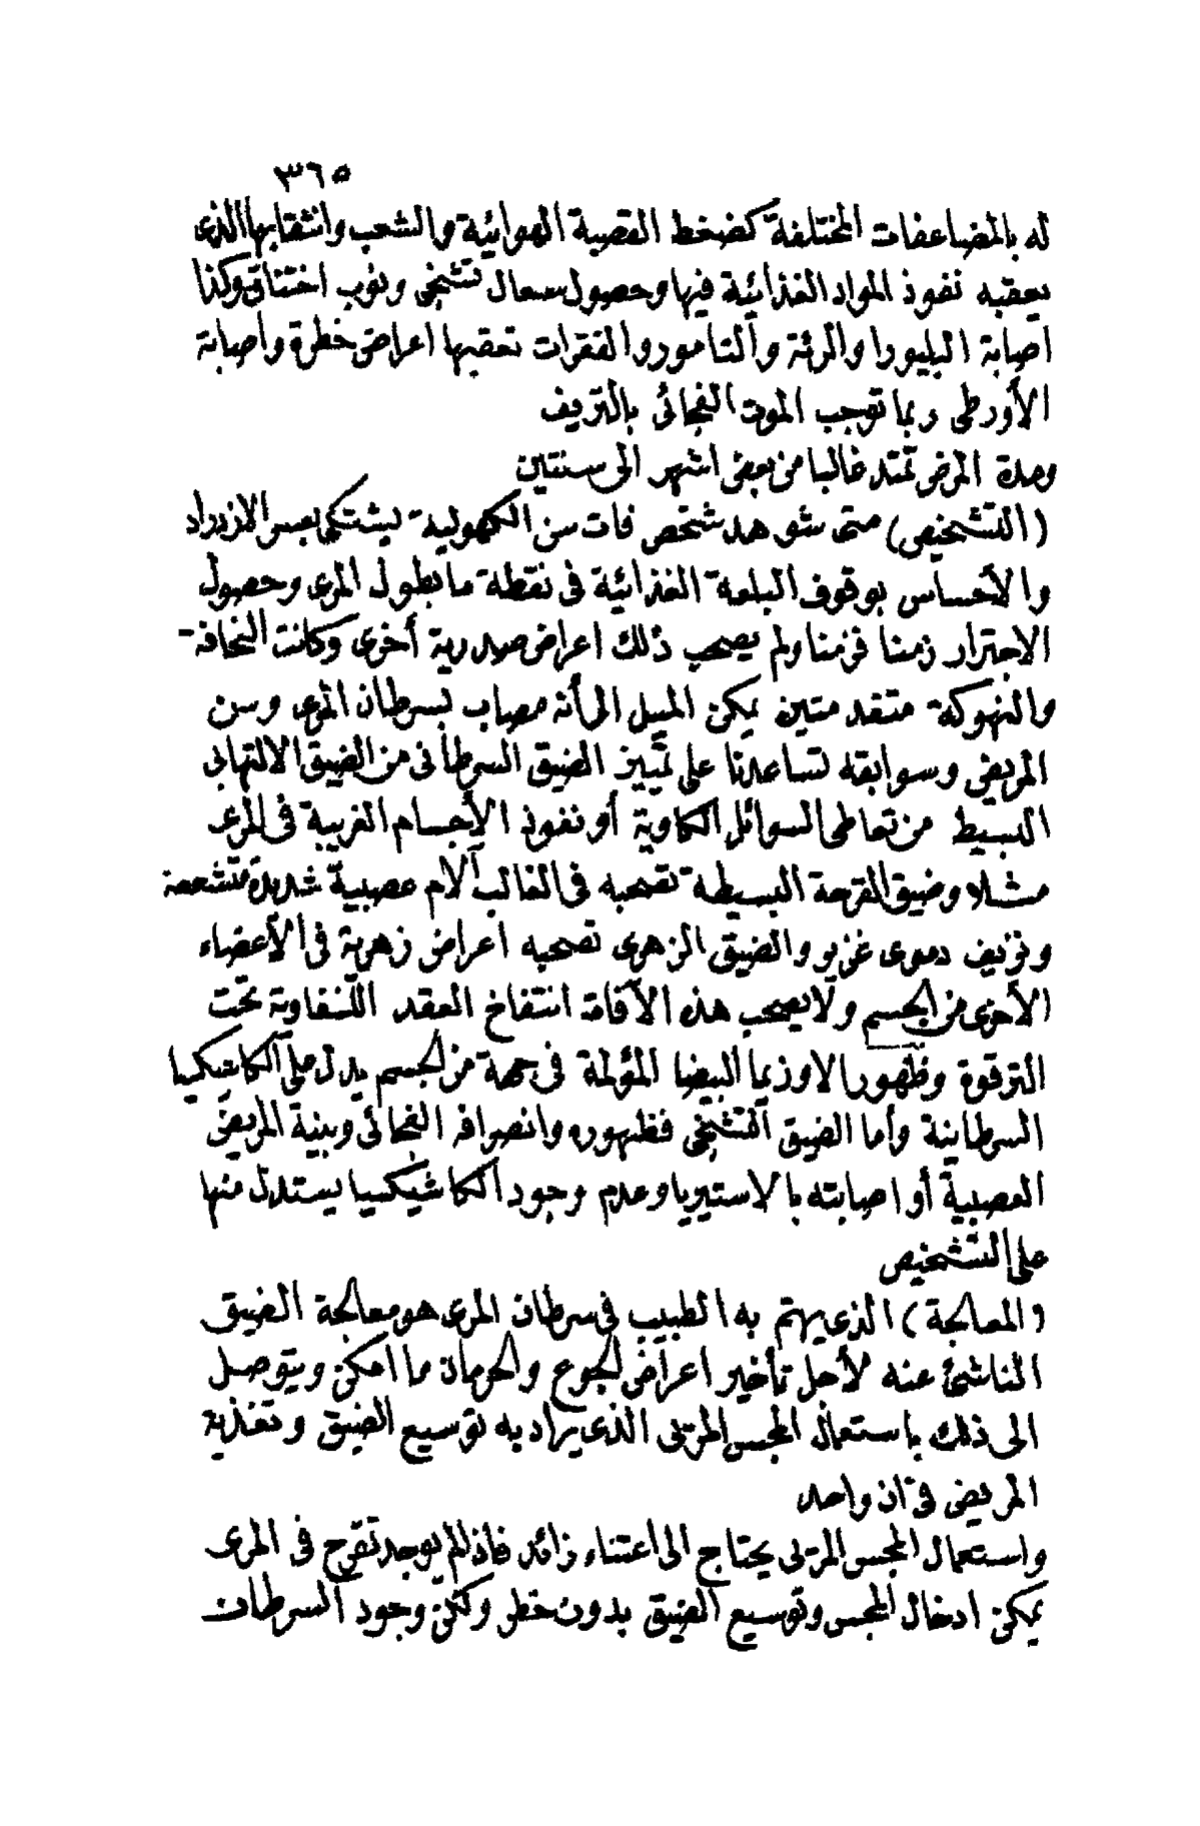 ٣٦٥
له بالمضاعفات المختلفة كضغط القصبة الهوائية والشعب وانثقابها الذى
يعقبه نفوذ المواد الغذائية فيها وحصول سعال تشنجى ونوب اختناق وكذا
اصابة البليورا والرئة والتامور والفقرات تعقبها اعراض خطرة واصابة
الأورطى ربما توجب الموت الفجائى بالنزيف
ومدة المرض تمتد غالبا من بعض اشهر الى سنتين
(التشخيص) متى شوهد شخص فات سن الكهولية يشتكى بعسر الازدراد
والأحساس بوقوف البلعة الغذائية فى نقطة ما بطول المرى وحصول
الاجترار زمنا فزمنا ولم يصحب ذلك اعراض صدرية أخرى وكانت النحافة
والنهوكة متقدمتين يمكن الميل الى أنه مصاب بسرطان المرى وسن
المريض وسوابقه تساعدنا على تمييز الضيق السرطانى من الضيق الالتهابى
البسيط من تعاطى السوائل الكاوية أو نفوذ الأجسام الغريبة فى المرى
مثلا وضيق القرحة البسيطة تصحبه فى الغالب آلام عصبية شديدة متشععة
ونزيف دموى غزير والضيق الزهرى تصحبه اعراض زهرية فى الأعضاء
الأخرى من الجسم ولا يصحب هذه الآفات انتفاخ العقد اللنفاوية تحت
الترقوة وظهور الاوذيما البيضا المؤلمة فى جهة من الجسم يدل على الكاشيكسيا
السرطانية وأما الضيق التشنجى فظهوره وانصرافه الفجائى وبنية المريض
العصبية أو اصابته بالاستيريا وعدم وجود الكاشيكسيا يستدل منها
على التشخيص
(المعالجة) الذى يهتم به الطبيب فى سرطان المرى هو معالجة الضيق
الناشئ عنه لأجل تأخير اعراض الجوع والحرمان ما امكن ويتوصل
الى ذلك باستعمال المجس المريئى الذى يراد به توسيع الضيق وتغذية
المريض فى آن واحد
واستعمال المجس المريئى يحتاج الى اعتناء زائد فاذا لم يوجد تقرح فى المرى
يمكن ادخال المجس وتوسيع الضيق بدون خطر ولكن وجود السرطان